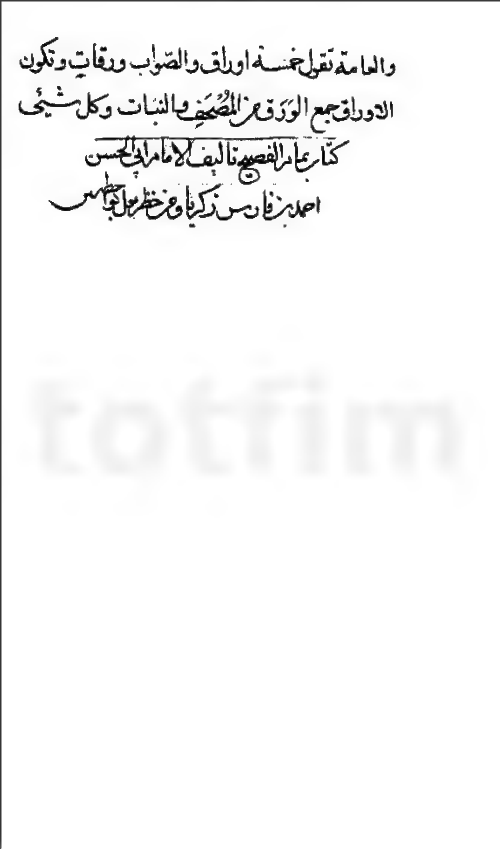 والعامة تقول خمسة اوراق والصواب ورقات وتكون
الاوراق جمع الوَرَق من المُصْحَفِ والنبات وكل شيئ
كتاب تمام الفصيح تاليف الامام ابى الحسن
احمد بن فارس بن زكريا ومن خطه
totfim